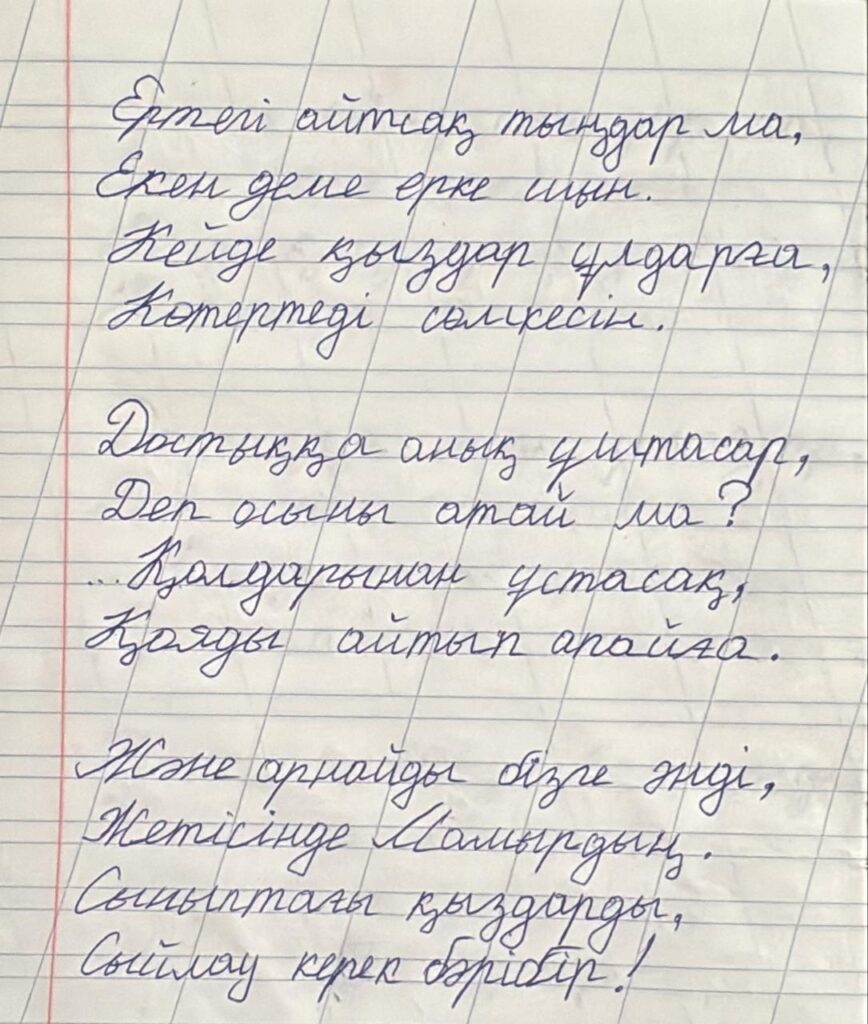 Ертегі айтсақ тыңдар ма,
Екен деме ерке шын.
Кейде қыздар ұлдарға,
Көтертеді сөмкесін.
Достыққа анық ұштасар,
Деп осыны атай ма?
...Қолдарынан ұстасақ,
Қояды айтып апайға.
Және арнайды бізге әнді,
Жетісінде Мамырдың.
Сыныптағы қыздарды,
Сыйлау керек бәрібір!